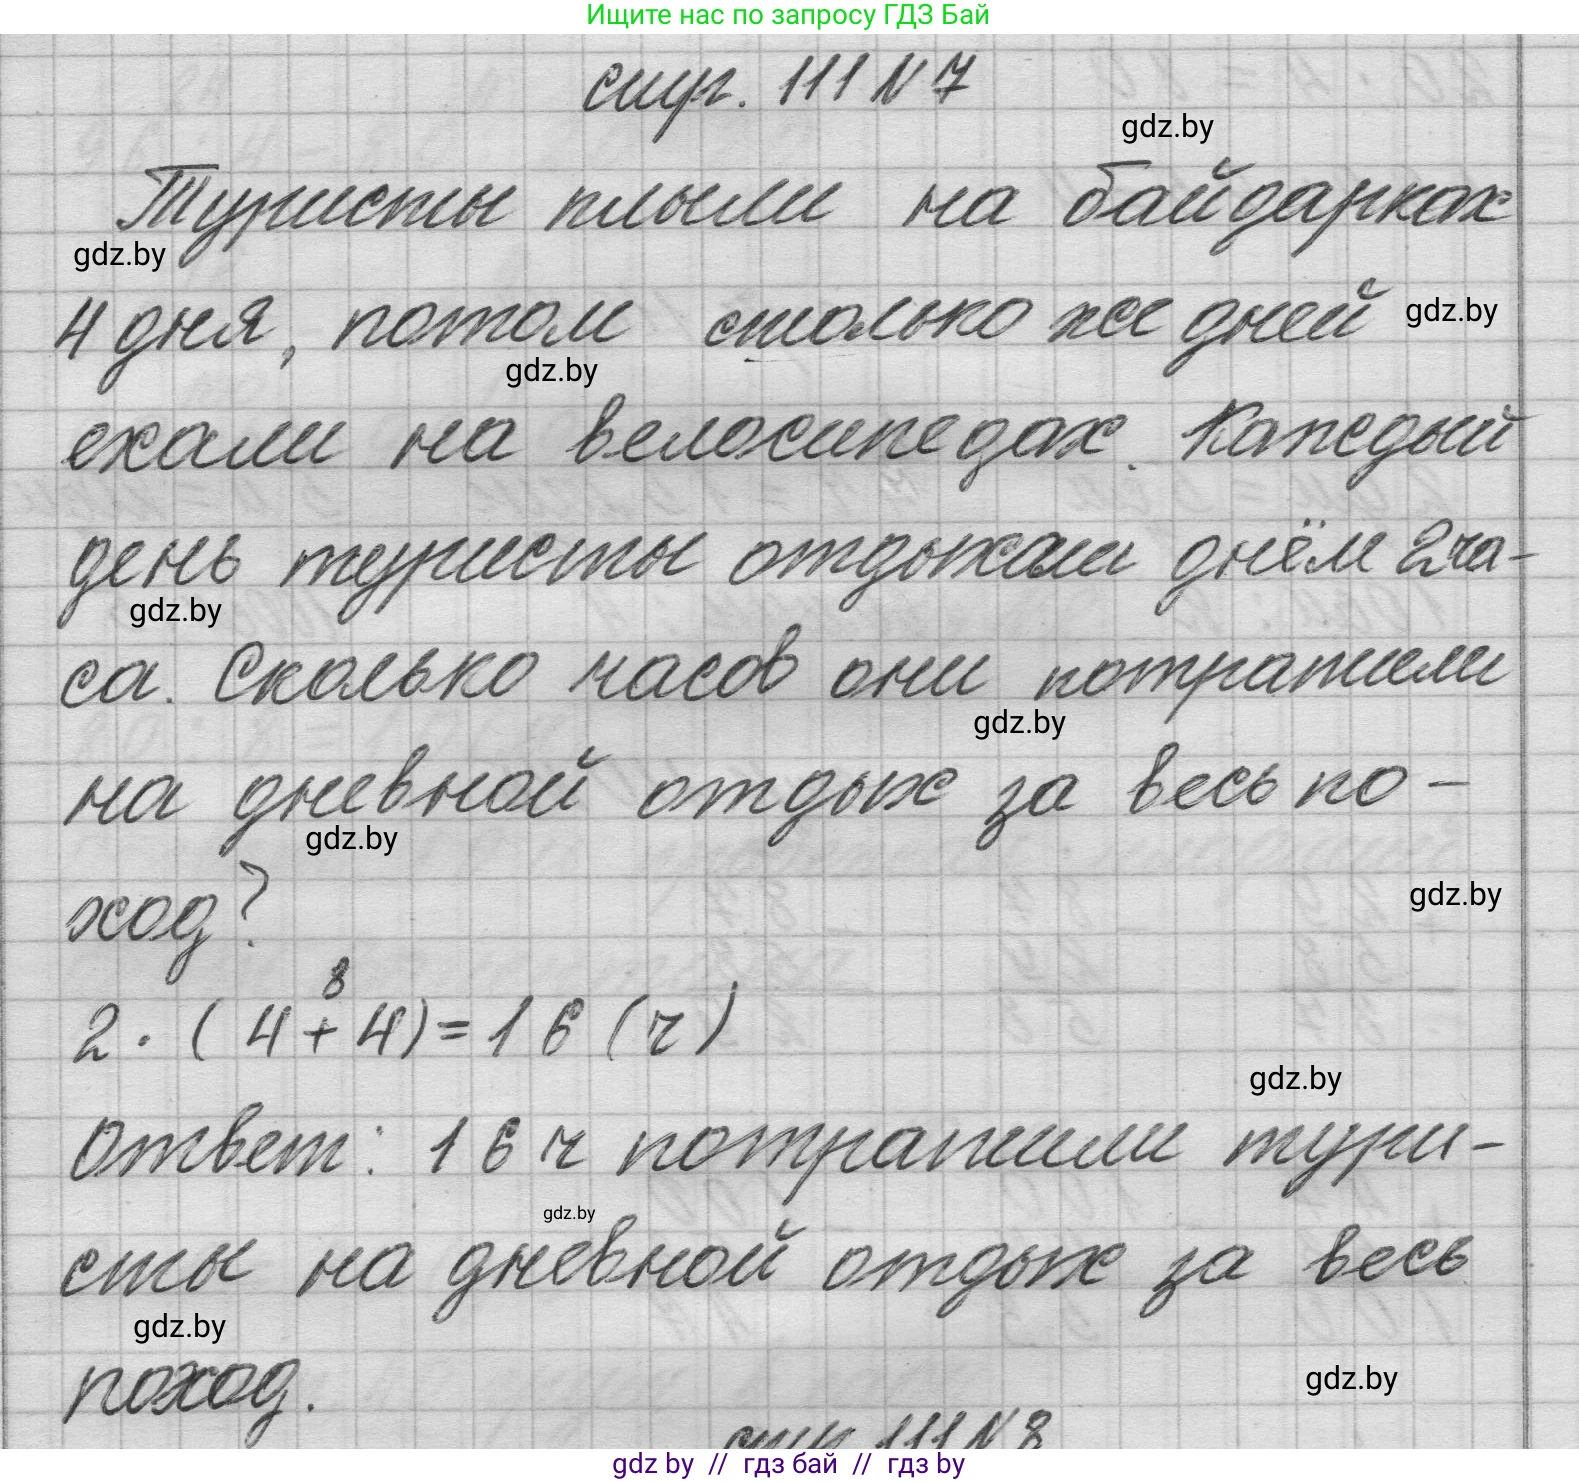 Ищите нас по запросу ГДЗ Бай
стр. 111 N 7
gdz.by
Туристы плыли на байдарках
gdz.by
4 дня, потом столько же дней
gdz.by
gdz.by
ехали на велосипедах. Каждый
день туристы отдыхали днём 2 ча-
gdz.by
са. Сколько часов они потратили
gdz.by
на дневной отдых за весь по-
gdz.by
ход?
gdz.by
8
2 · (4+4)=16 (ч)
gdz.by
Ответ: 16 ч потратили тури-
gdz.by
сты на дневной отдых за весь
gdz.by
поход.
gdz.by
стр 111 N 8
gdz by // гдз бай // гдз by